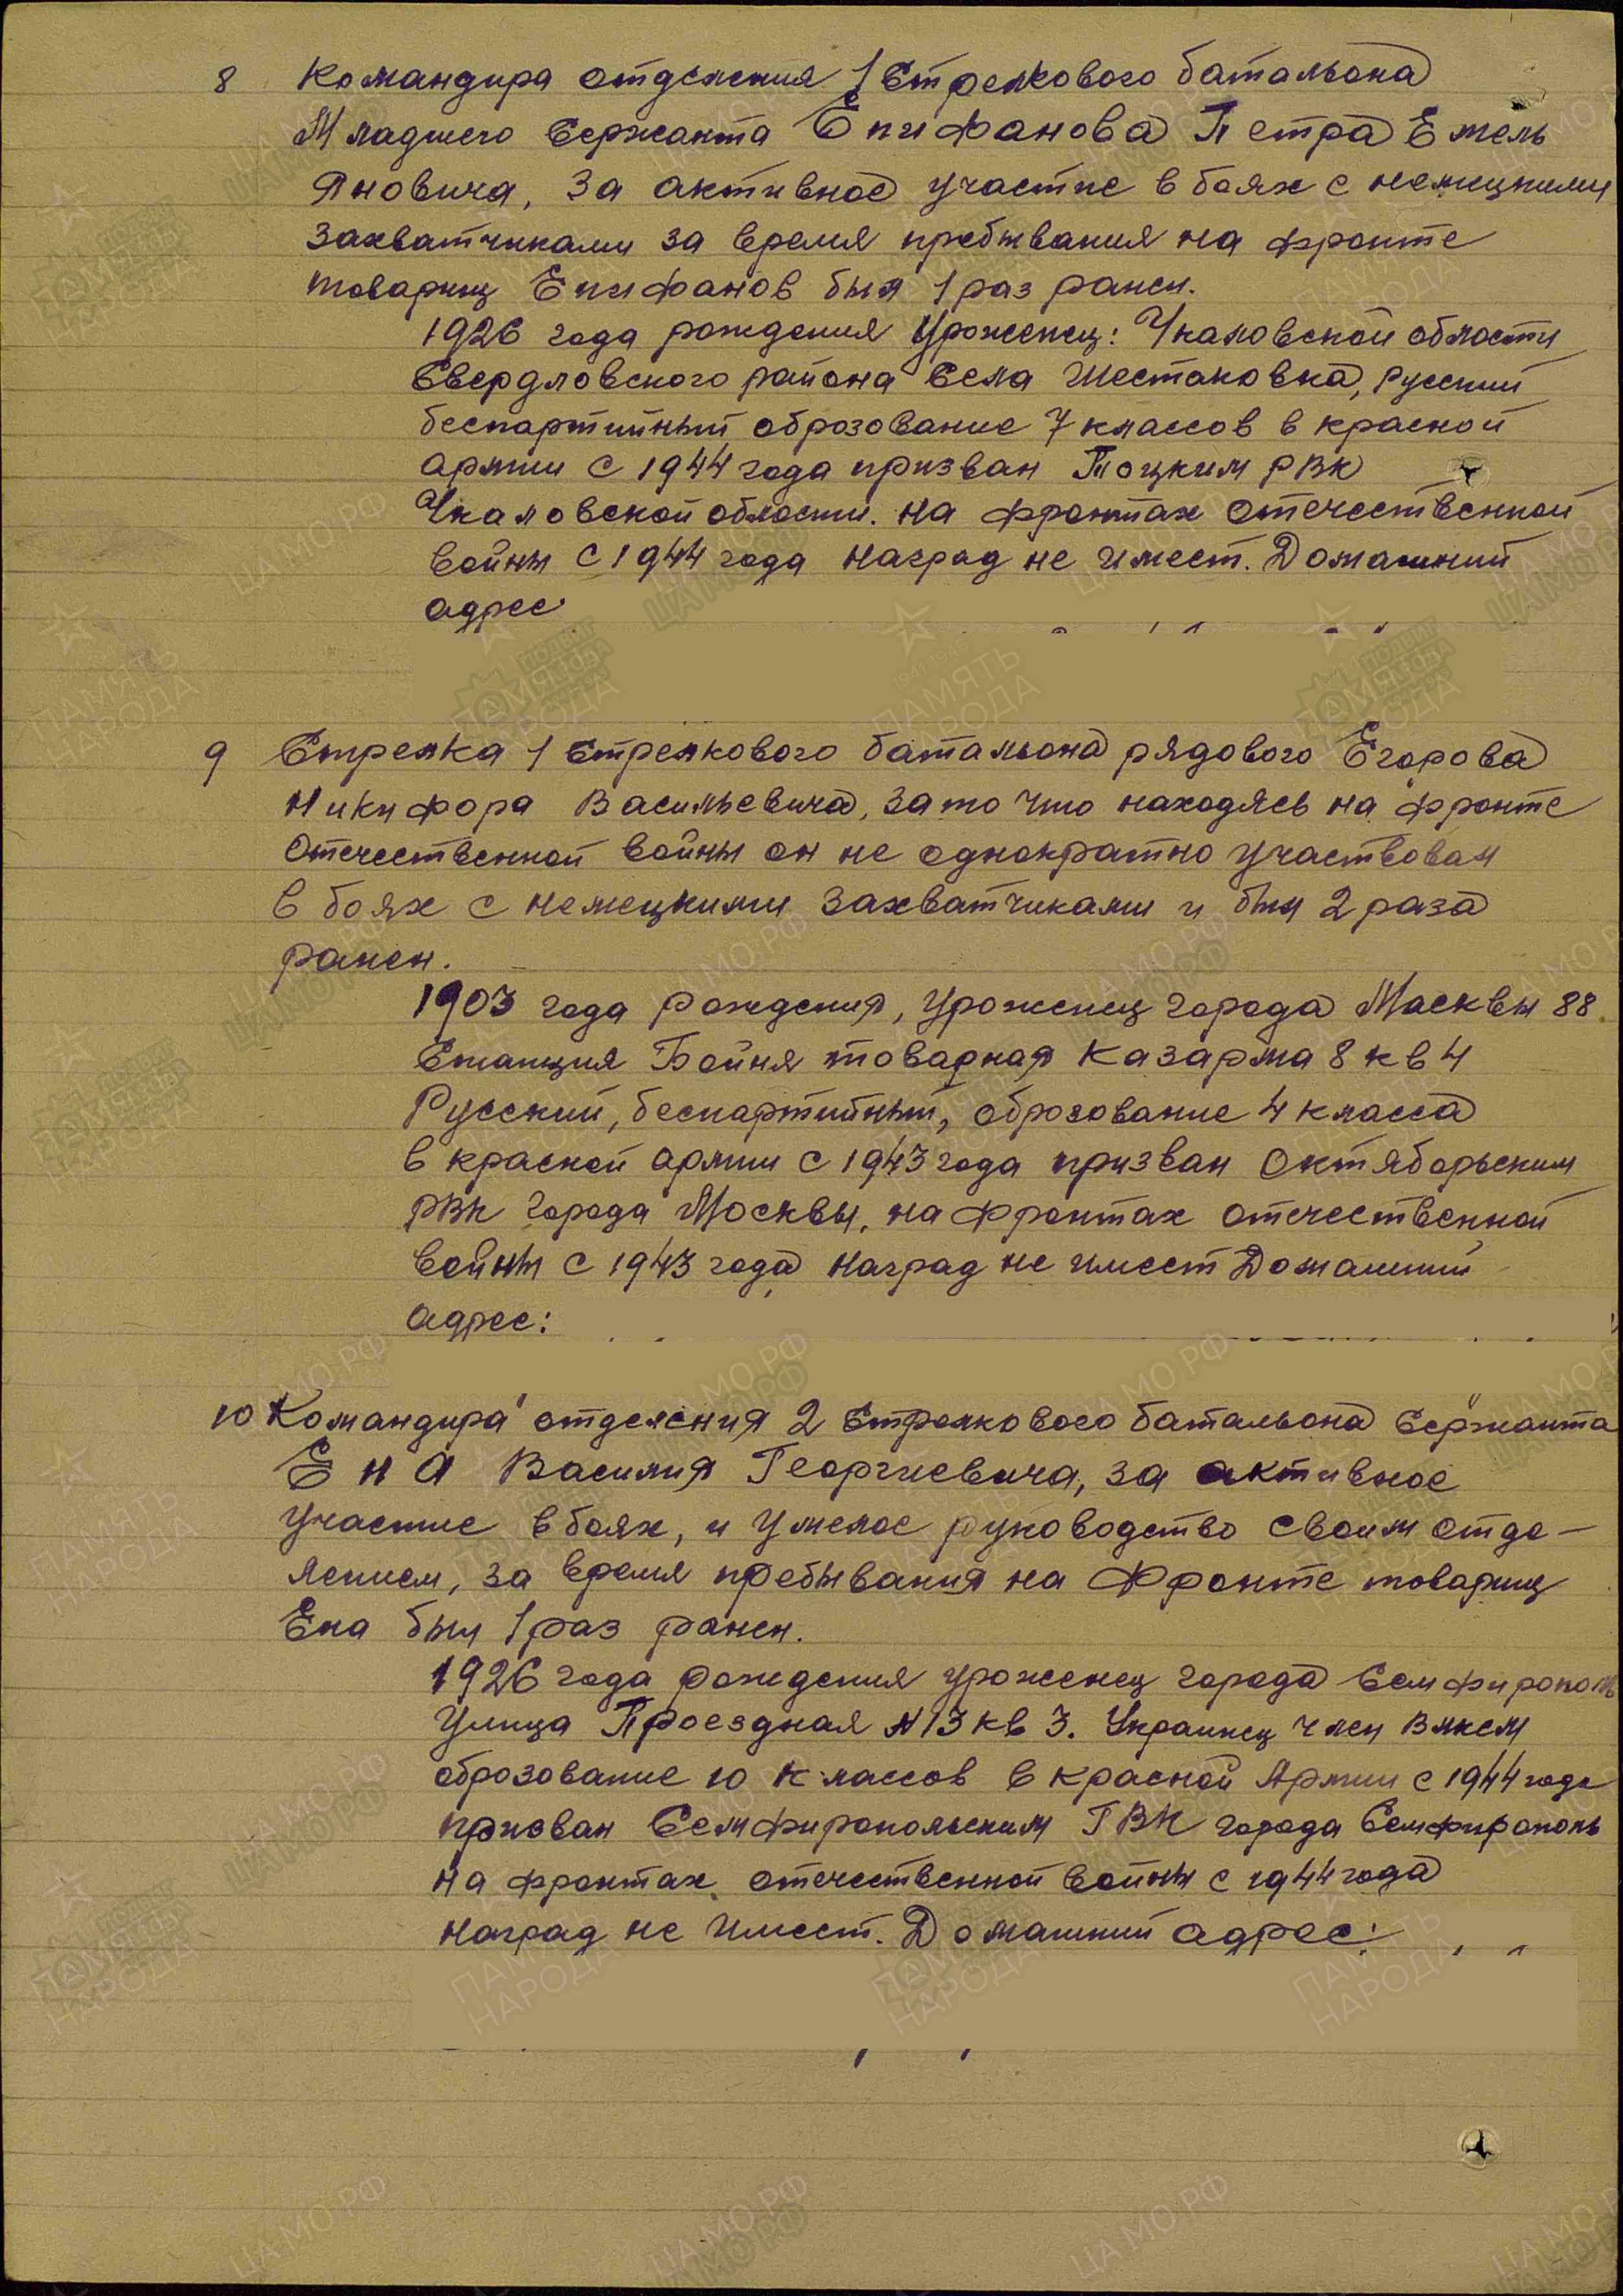 8 Командира отделения 1 Стрелкового батальона
Младшего Сержанта Епифанова Петра Емель
Яновича, За активное участие в боях с немецкими
захватчиками за время пребывания на фронте
товарищ Епифанов был 1 раз ранен.
1926 года рождения Уроженец: Чкаловской области
Свердловского района Села Шестаковка, Русский
беспартийный образование 7 классов в красной
армии с 1944 года призван Тоцким РВК
Чкаловской области. на фронтах отечественной
войны с 1944 года наград не имеет. Домашний
адрес:
9 Стрелка 1 Стрелкового батальона рядового Егорова
Никифора Васильевича, за то что находясь на фронте
Отечественной войны он не однократно участвовал
в боях с немецкими захватчиками и был 2 раза
ранен.
1903 года рождения, Уроженец города Москвы 88
Станция Бойня товарная Казарма 8 кв 4
Русский, беспартийный, оброзование 4 класса
в красной армии с 1943 года призван Октяборьским
РВК города Москвы, на фронтах отечественной
войны с 1943 года наград не имеет Домашний
адрес:
10 Командира отделения 2 Стрелкового батальона Сержанта
Ена Василия Георгиевича, за активное
участие в боях, и умелое руководство своим отде-
лением, за время пребывания на Фронте товарищ
Ена был 1 раз ранен.
1926 года рождения уроженец города Семфирополь
Улица Проездная N 13 кв 3. Украинец член Влксм
оброзование 10 классов в красной Армии с 1944 года
призван Семфиропольским ГВК города Семфирополь
на фронтах отечественной войны с 1944 года
наград не имеет. Домашний адрес:
ПАМЯТЬ НАРОДА
ЦА МО РФ